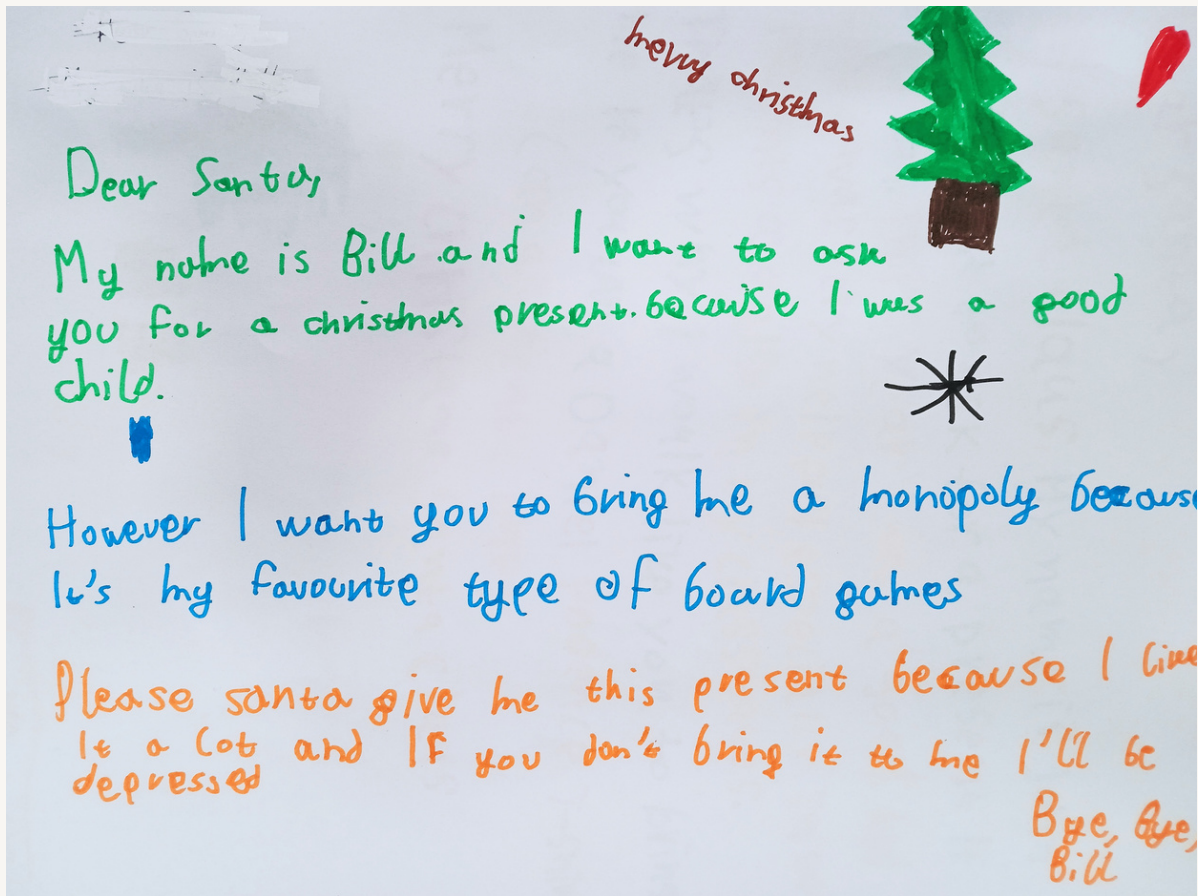 merry christmas
Dear Santa,
My name is Bill and I want to ask
you for a christmas present. because I was a good
child.
However I want you to bring me a monopoly because
It's my favourite type of board games
Please santa give me this present because I like
It a lot and If you don't bring it to me I'll be
depressed
Bye, Bye,
Bill